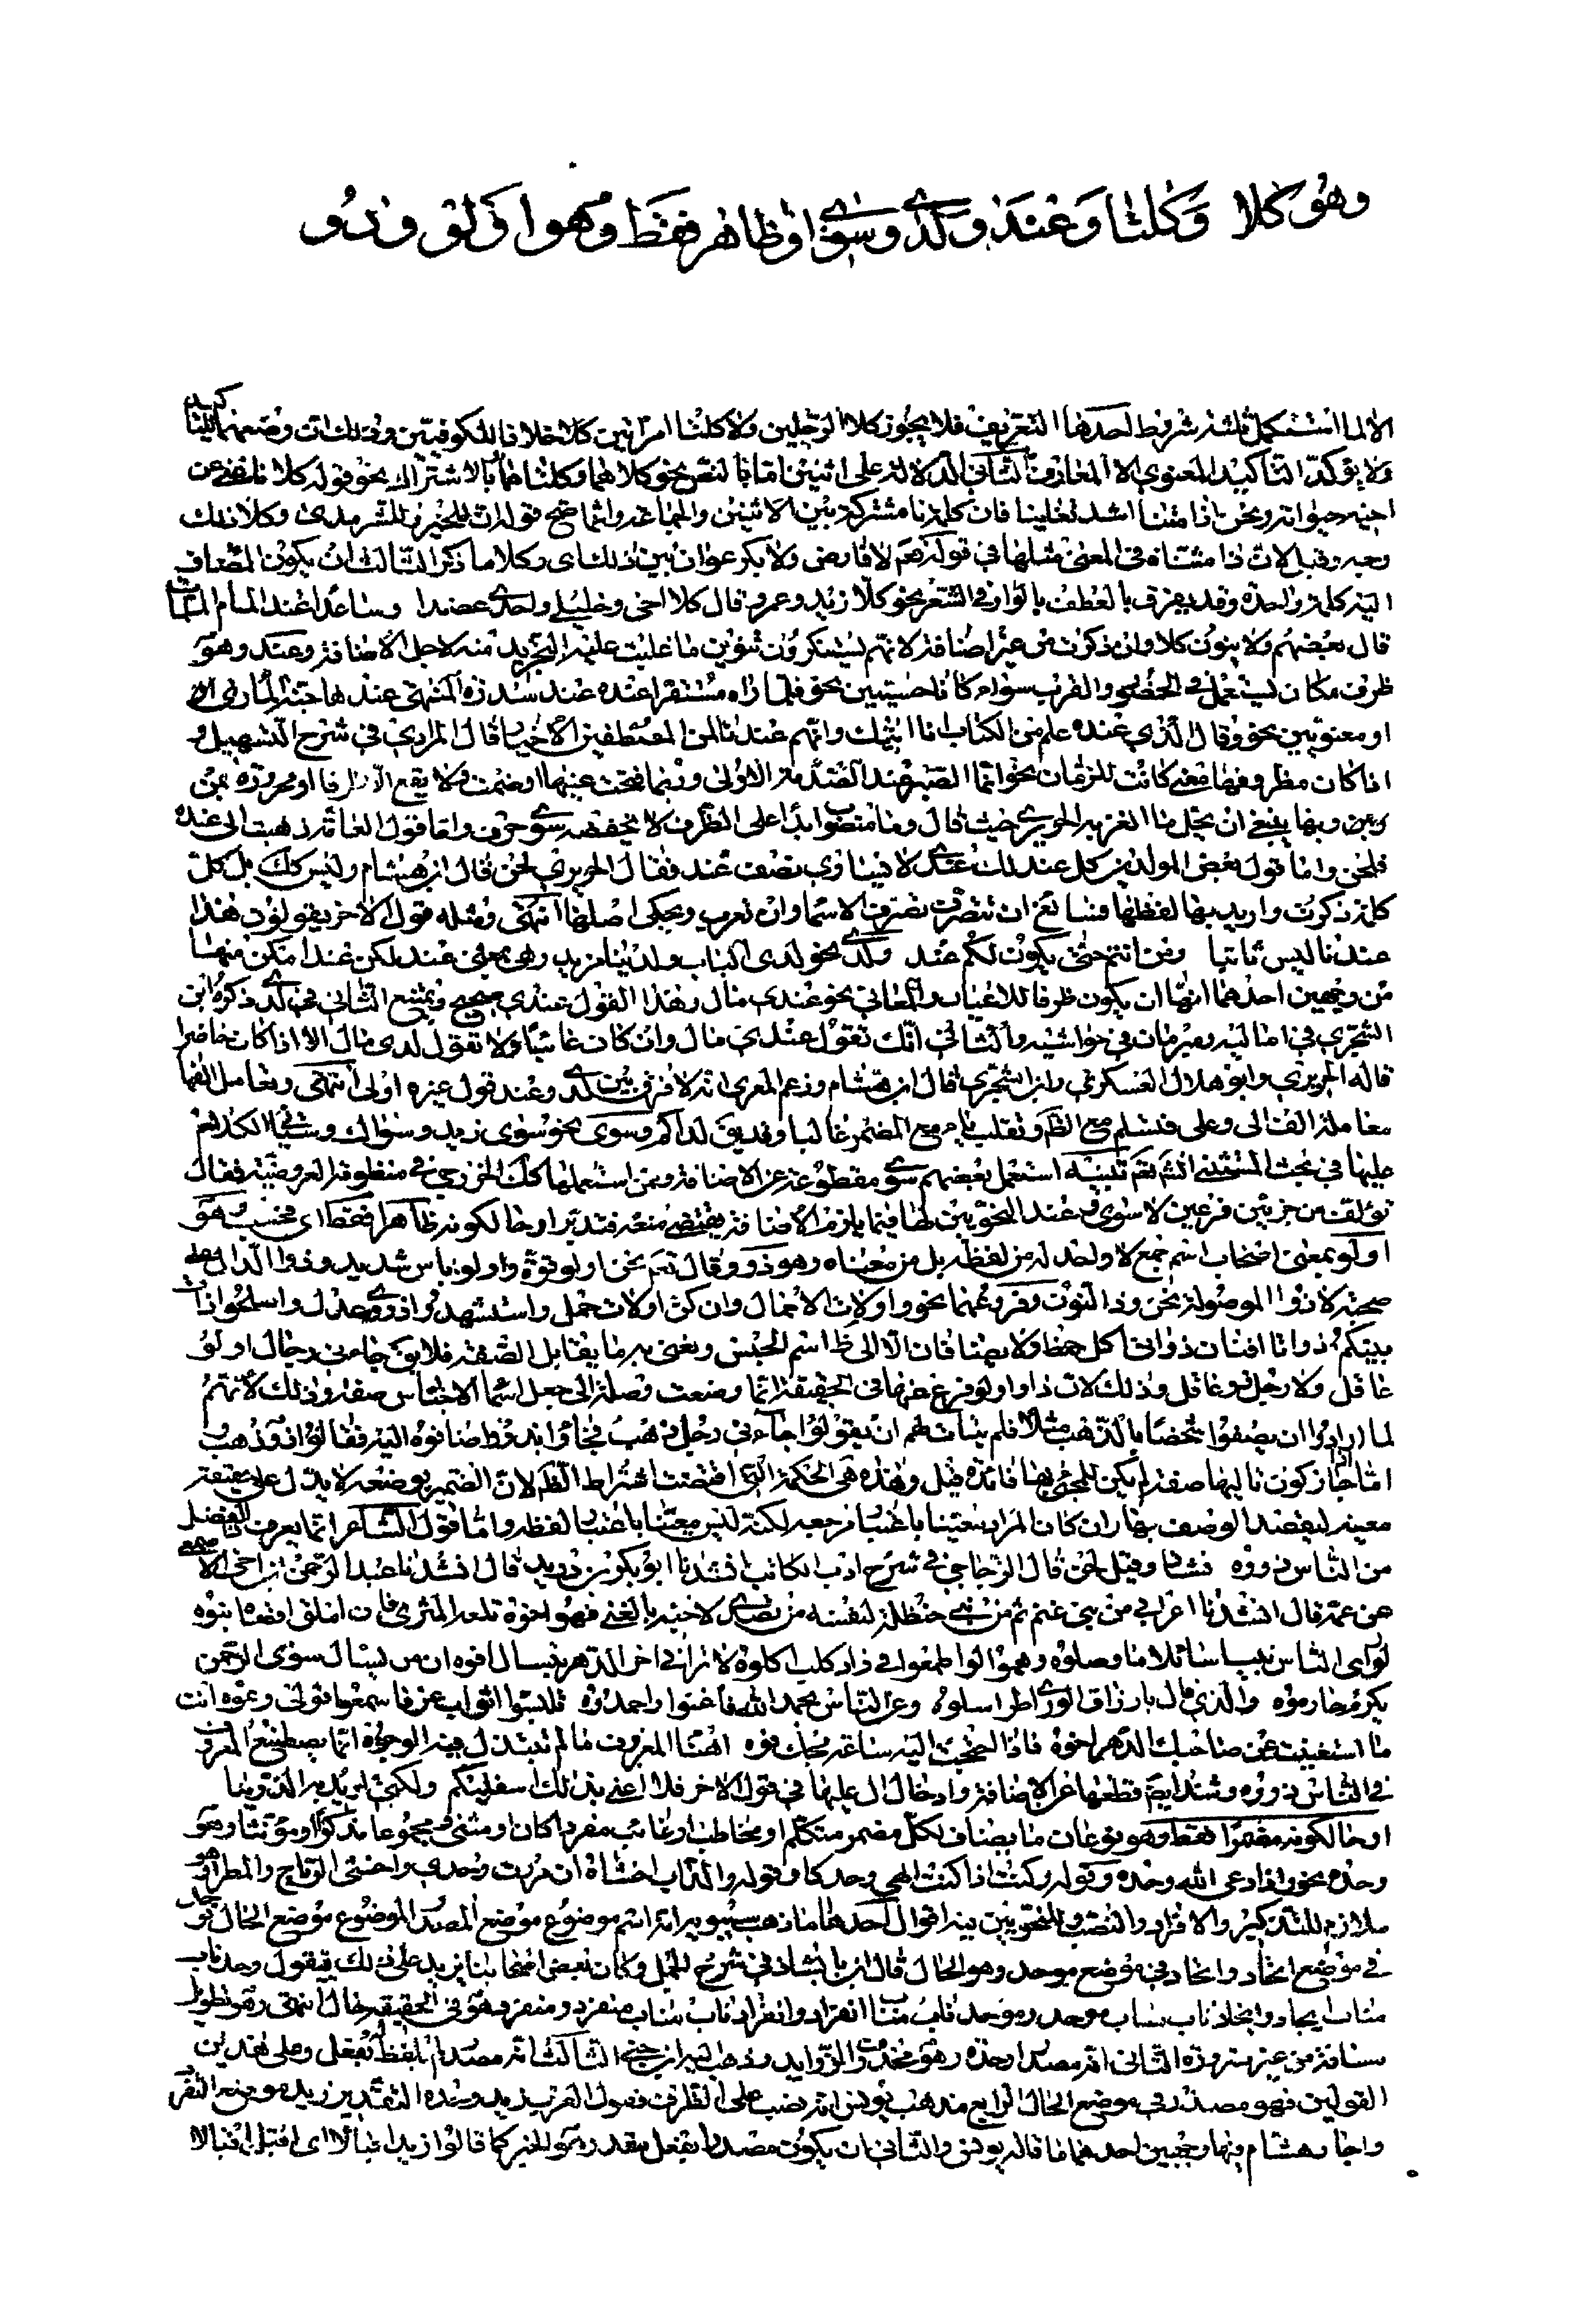 وهو كلا وكلتا وعند ولدى وسوى او ظاهر فقط وهو اولو وذو
الا لما استكمل ثلثة شروط احدها التعريف فلا يجوز كلا رجلين ولا كلتا امراتين خلافا للكوفيين وذلك ان وضعهما
ولا يؤكد التاكيد المعنوي الا المعارف الثاني الدلالة على اثنين اما بالنص نحو كلاهما وكلتاهما او بالاشتراك نحو قوله كلانا غني عن
اخيه حياته ونحن اذا متنا اشد تغانيا فان كلمة نا مشتركة بين الاثنين والجماعة وانما صح قوله ان للخير وللشر مدى وكلا ذلك
وجه وقبل لان ذا مثناة في المعنى مثلها في قوله تعم لا فارض ولا بكر عوان بين ذلك اى وكلا ما ذكر الثالث ان يكون المضاف
اليه كلمة واحدة وقد يفرق بالعطف بالواو في الشعر نحو كلا زيد وعمرو قال كلا اخي وخليلي واجدي عضدا وساعدا عند المام الملمات
قال بعضهم ولا ينون كلا وان ذكرت من غير اضافة لانهم يستنكرون تنوين ما غلبت عليه التجريد منه لاجل الاضافة وعند وهو
ظرف مكان يستعمل في الحضور والقرب سواء كانا حسيين نحو فلما راه مستقرا عنده عند سدرة المنتهى عندها جنة الماوى
او معنويين نحو وقال الذي عنده علم من الكتاب انا اتيك وانهم عندنا لمن المصطفين الاخيار قال المرادي في شرح التسهيل و
اذا كان مظروفها معنى كانت للزمان نحو انما الصبر عند الصدمة الاولى وربما فتحت عينها او ضمت ولا يقع الا ظرفا او مجرورة بمن
وما منصوب ابدا على الظرف لا يخفضه سوى حرف واما قول العامة ذهبت الى عنده
فلحن واما قول بعض المولدين كل عند لك عندي لا يساوي نصف عند فقال الحريري لحن قال ابن هشام وليس كك بل كل
كلمة ذكرت واريد بها لفظها فسائغ ان تتصرف تصرف الاسما وان تعرب ويحكى اصلها انتهى ومثله قول الاخر يقولون هذا
عندنا ليس ثابتا ومن انتم حتى يكون لكم عند ولدى نحو لدى الباب ولدينا مزيد وهي بمعنى عند لكن عند امكن منها
من وجهين احدهما انها ان يكون ظرفا للاعيان والمعاني نحو عندي مال وهذا القول عندي صحيح ويمتنع الثاني في لدى ذكره ابن
الشجري في اماليه ومبرمان في حواشيه والثاني انك تقول عندي مال وان كان غائبا ولا تقول لدى مال الا اذا كان حاضرا
قاله الحريري وابو هلال العسكري وابن الشجري قال ابن هشام وزعم المعري انه لا فرق بين لدى وعند وقول غيره اولى انتهى وتعامل الفها
معاملة الف الى وعلى فتسلم مع الظ وتقلب ياء مع المضمر غالبا وقد يق لداكم وسوى نحو سوى زيد وسواك وسياتي الكلام
عليها في بحث المستثنى انشم تعم تنبيه استعمل بعضهم سوى مقطوعة عن الاضافة وممن استعملها كك الخزرجي في منظومته العروضية فقال
تؤلف من جزئين فرعين لا سوى وعند النحويين لها فيما يلزم الاضافة يقتضي منعه فتدبر او حالكونه ظاهرا فقط اى فحسب وهو
اولو بمعنى اصحاب اسم جمع لا واحد له من لفظه بل من معناه وهو ذو وقال تعم نحن اولو قوة واولو باس شديد وذو الدال على
صحبة لا ذو الموصولة نحن وذا النون وفروعهما نحو واولات الاحمال وان كن اولات حمل واستشهدوا ذوي عدل واصلحوا ذات
بينكم ذواتا افنان ذواتى اكل خمط ولا يضافان الا الى ظ اسم الجنس ونعني به ما يقابل الصفة فلا يق جاءني رجال اولو
عاقل ولا رجل ذو عاقل وذلك لان ذا واولو فرع عنها في الحقيقة انما وضعت وصلة الى جعل اسما الاجناس صفة وذلك لانهم
لما ارادوا ان يصفوا شخصا بالذهب مثلا فلم يتات لهم ان يقولوا جاءني رجل ذهب فجاؤا بذو واضافوه اليه فقالوا ذو ذهب
اما اذا كان تاليها صفة لم يكن للمجيء بها فائدة قيل وهذه هي الحكمة التي اقتضت اشتراط الظ لان الضمير بوضعه لا يدل على حقيقة
معينة ليقصد الوصف بها وان كان المراد متعينا باعتبار مرجعه لكنه ليس معينا باعتبار لفظه واما قول الشاعر انما يعرف ذا الفضل
من الناس ذووه فشاذ وقيل لحن قال الزجاجي في شرح ادب الكاتب انشدنا ابو بكر بن دريد قال انشدنا عبد الرحمن ابن اخي الاصمعي
عن عمه قال انشدنا اعرابي من بني غنم ثم من بني حنظلة لنفسه
لو راى الناس نبيا سائلا ما وصلوه وهم لو طمعوا في زاد كلب اكلوه لا تراني اخر الدهر بتسال افوه ان من يسال سوى الرحمن
يكثر محارموه والذي قام بارزاق الورى طرا سلوه وعن الناس بحمد الله فاغنوا واحمدوه تلبسوا اثواب عز فاسمعوا قولي وعوه انت
ما استغنيت عن صاحبك الدهر اخوه فاذا احتجت اليه ساعة مجك فوه اهنا المعروف ما لم تبتذل فيه الوجوه انما يصطنع المعروف
في الناس ذووه وشذ ايض قطعها عن الاضافة وادخال ال عليها في قول الاخر فلا اعني بذلك اسفليكم ولكني اريد به الذوينا
او حالكونه مضمرا فقط وهو نوعان ما يضاف لكل مضمر متكلم او مخاطب او غائب مفردا كان او مثنى او مجموعا مذكرا او مؤنثا وهو
وحده نحو واذا دعي الله وحده وقوله وكنت اذ كنت الهي وحدكا وقوله والذئب اخشاه ان مررت به وحدي واخشى الرياح والمطرا وهو
ملازم للتذكير والافراد والنصب وللنحويين فيه اقوال احدها ما ذهب سيبويه انه اسم موضوع موضع المصدر الموضوع موضع الحال
في موضع ايحاد وايحاد في موضع موحد وهو الحال قال ابن بابشاذ في شرح الجمل وكان بعض اصحابنا يزيد على ذلك فيقول وحده ناب
مناب ايحاد وايحاد ناب مناب موحد وموحد ناب مناب انفراد وانفراد ناب مناب منفرد ومنفرد هو في الحقيقة حال انتهى وهو تطويل
الثاني انه مصدر اوحدته وهو محذوف الزوايد وذهب اليه ابن جني الثالث انه مصدر لم يلفظ له بفعل وعلى هذين
القولين فهو مصدر في موضع الحال الرابع مذهب يونس انه نصب على الظرف فقول العرب زيد وحده التقدير زيد موضع التفرد
واجاز هشام فيها وجهين احدهما ما قاله يونس والثاني ان يكون مصدرا بفعل مقدر هو الخبر كما قالوا زيد اقبالا اى اقبل اقبالا